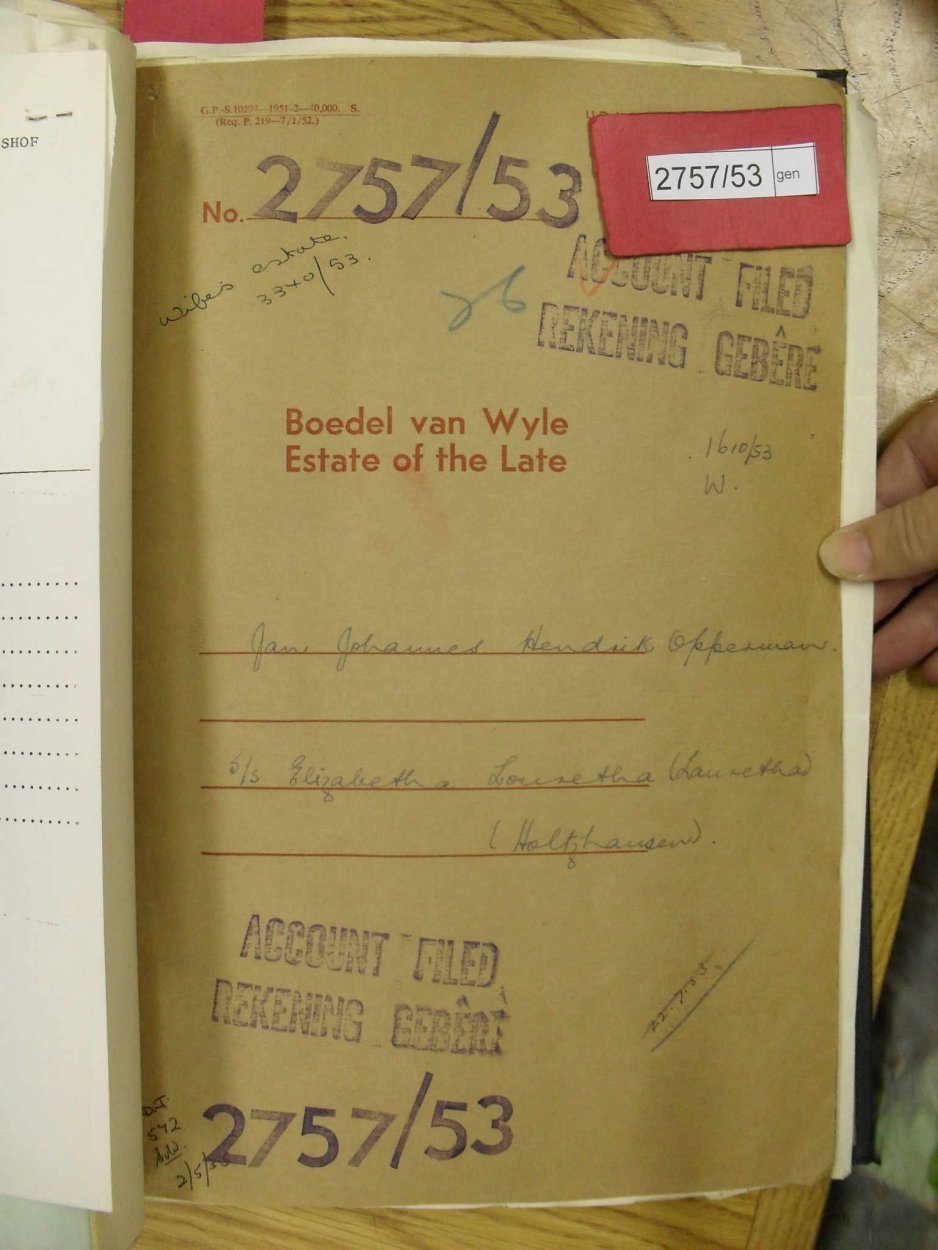 SHOF
G.P.-S.10294—1951-2—40,000. S.
(Req. P. 219—7/1/52.)
2757/53 gen
No. 2757/53
Wife's estate.
3340/53.
ACCOUNT FILED
REKENING GEBÊRE
Boedel van Wyle
Estate of the Late
1610/53
W.
Jan Johannes Hendrik Opperman.
S/s Elizabetha Louretha (Lauretha)
(Holtzhausen).
ACCOUNT FILED
REKENING GEBÊRE
22.7.53
D.T.
572
2757/53